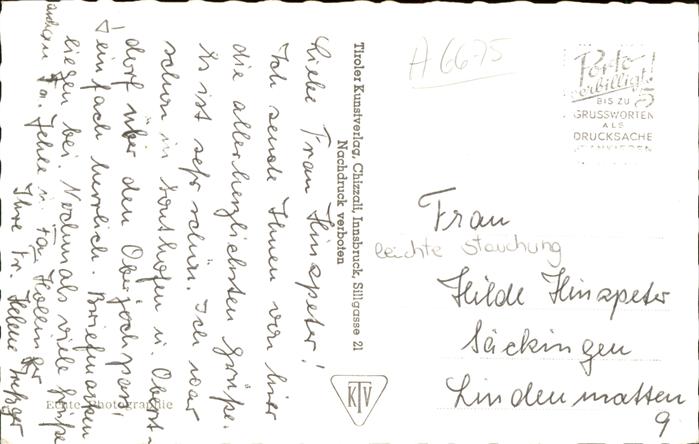 Liebe Frau Hinspeter!
Ich sende Ihnen von hier
die allerherzlichsten Grüße.
Es ist sehr schön. Ich war
schon in Sonthofen u. Oberst-
dorf über den Oberjochpass!
einfach herrlich. Briefmarken
liegen bei. Nochmals viele Grüße
Ihre Fr. Helene
Tiroler Kunstverlag, Chizzali, Innsbruck, Sillgasse 21
Nachdruck verboten
Echte Photographie
KTV
A 6675
Porto
verbilligt!
BIS ZU
5
GRUSSWORTEN
ALS
DRUCKSACHE
FRANKIEREN
Frau
leichte Stauchung
Hilde Hinspeter
Säckingen
Lindenmatten
9